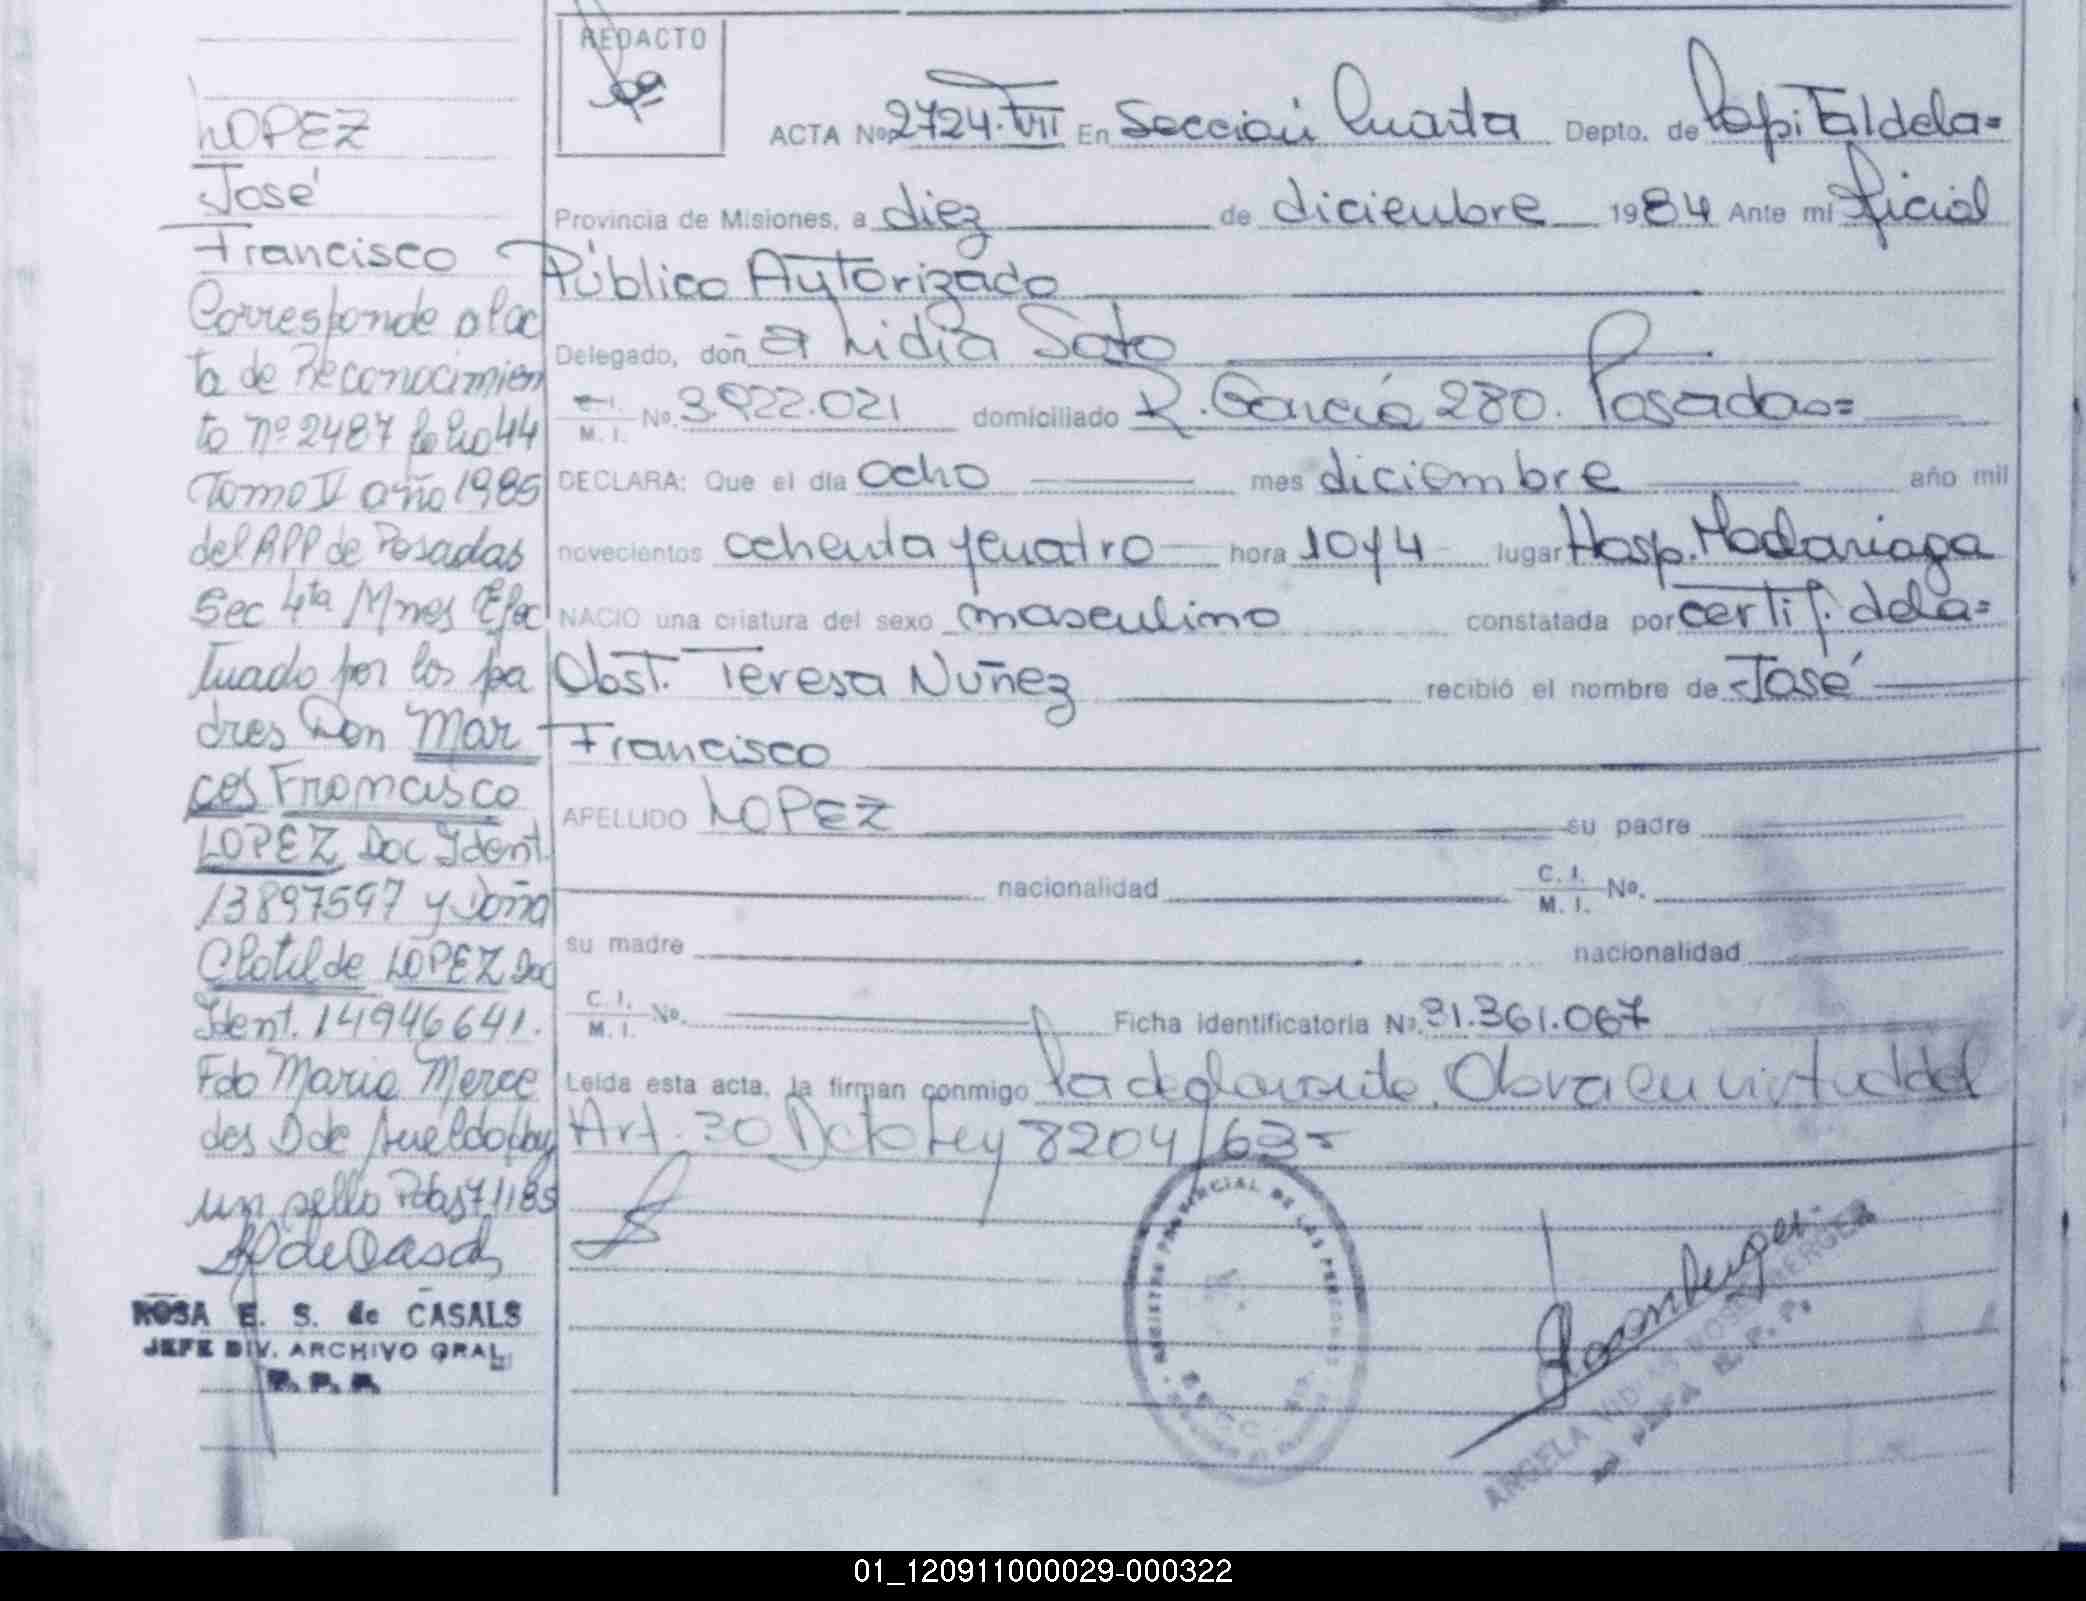 LOPEZ
José
Francisco
Corresponde al ac
ta de Reconocimien
to nº 2487 folio 44
Tomo IV año 1985
del RPP de Posadas
Sec 4ta Mnes Efec
tuado por los pa
dres Don Mar
cos Francisco
LOPEZ Doc Ident
13897597 y Doña
Clotilde LOPEZ Doc
Ident. 14946641.
Fdo Maria Merce
des D de hay
un sello Pdas 7 11 85
ROSA E. S. de CASALS
JEFE DIV. ARCHIVO GRAL
R. P. P.
REDACTO
ACTA Nº 2724. VII En Sección Cuarta Depto. de Capital de la=
Provincia de Misiones, a diez de diciembre 1984 Ante mí Oficial
Público Autorizado
Delegado, doña Lidia Soto
C. I. M. I. No. 3.922.021 domiciliado R. García 280. Posadas=
DECLARA: Que el día ocho mes diciembre año mil
novecientos ochenta y cuatro hora 10 y 4 lugar Hosp. Madariaga
NACIO una criatura del sexo masculino constatada por certif. de la=
Obst. Teresa Nuñez recibió el nombre de José
Francisco
APELLIDO LOPEZ su padre
nacionalidad C. I. M. I. No.
su madre nacionalidad
C. I. M. I. No. Ficha identificatoria Nº 31.361.067
Leída esta acta, la firman conmigo la declarante. Obra en virtud del
Art. 30 Dcto Ley 8204/63-
REGISTRO PROVINCIAL DE LAS PERSONAS
ANGELA ROSENBERGER
JEFA R. P. P.
01_120911000029-000322